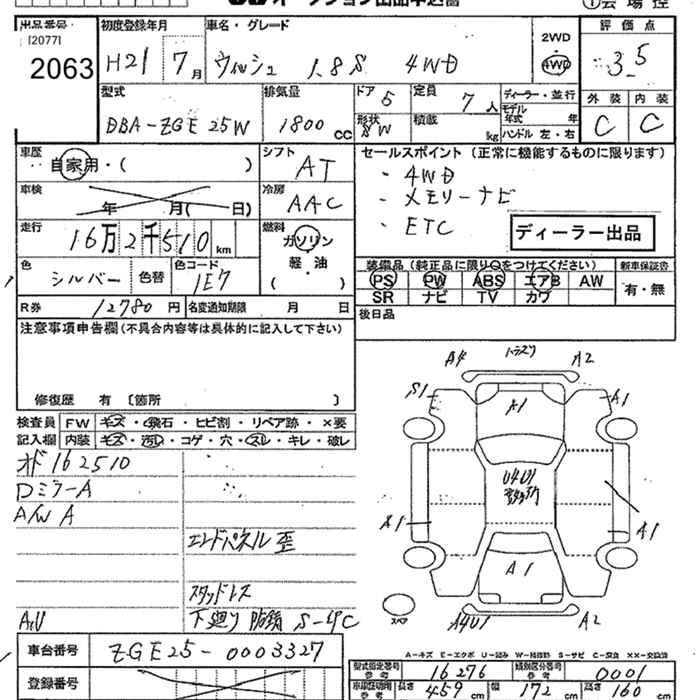 オークション出品申込書
①会場控
出品番号
[2077]
2063
初度登録年月
H21 7月
車名・グレード
ウィッシュ 1.8S 4WD
2WD
・
4WD
評価点
3.5
外装 内装
C C
型式
DBA-ZGE25W
排気量
1800cc
ドア 5
形状 SW
定員 7人
積載 kg
ディーラー・並行
モデル年式 年
ハンドル 左・右
車歴
自家用・( )
シフト
AT
車検
年 月( 日)
冷房
AAC
走行
16万2千510km
燃料
ガソリン
・
軽・油
( )
色
シルバー
色替
色コード
1E7
R券 12780円
名変通知期限 月 日
セールスポイント (正常に機能するものに限ります)
・4WD
・メモリーナビ
・ETC
ディーラー出品
装備品(純正品に限り○をつけてください)
新車保証書
PS PW ABS エアB AW
SR ナビ TV カワ
有・無
後日品
注意事項申告欄(不具合内容等は具体的に記入して下さい)
修復歴 有 〔箇所 〕
検査員記入欄
FW キズ・飛石・ヒビ割・リペア跡・×要
内装 キズ・汚れ・コゲ・穴・スレ・キレ・破レ
オド162510
Dミラー A
A/W A
エンドパネル歪
スタッドレス
下廻り防錆 S-4C
A4 A2
S1 A1 A1
U4U1
A1 A1
A1
A4U1 A2
スペア
A=キズ E=エクボ U=凹み W=補修跡 S=サビ C=腐食 XX=交換済
車台番号
ZGE25-0003327
登録番号
型式指定番号 参考 16276
類別区分番号 参考 0001
車検証明用 参考 長さ 459cm 幅 172cm 高さ 160cm